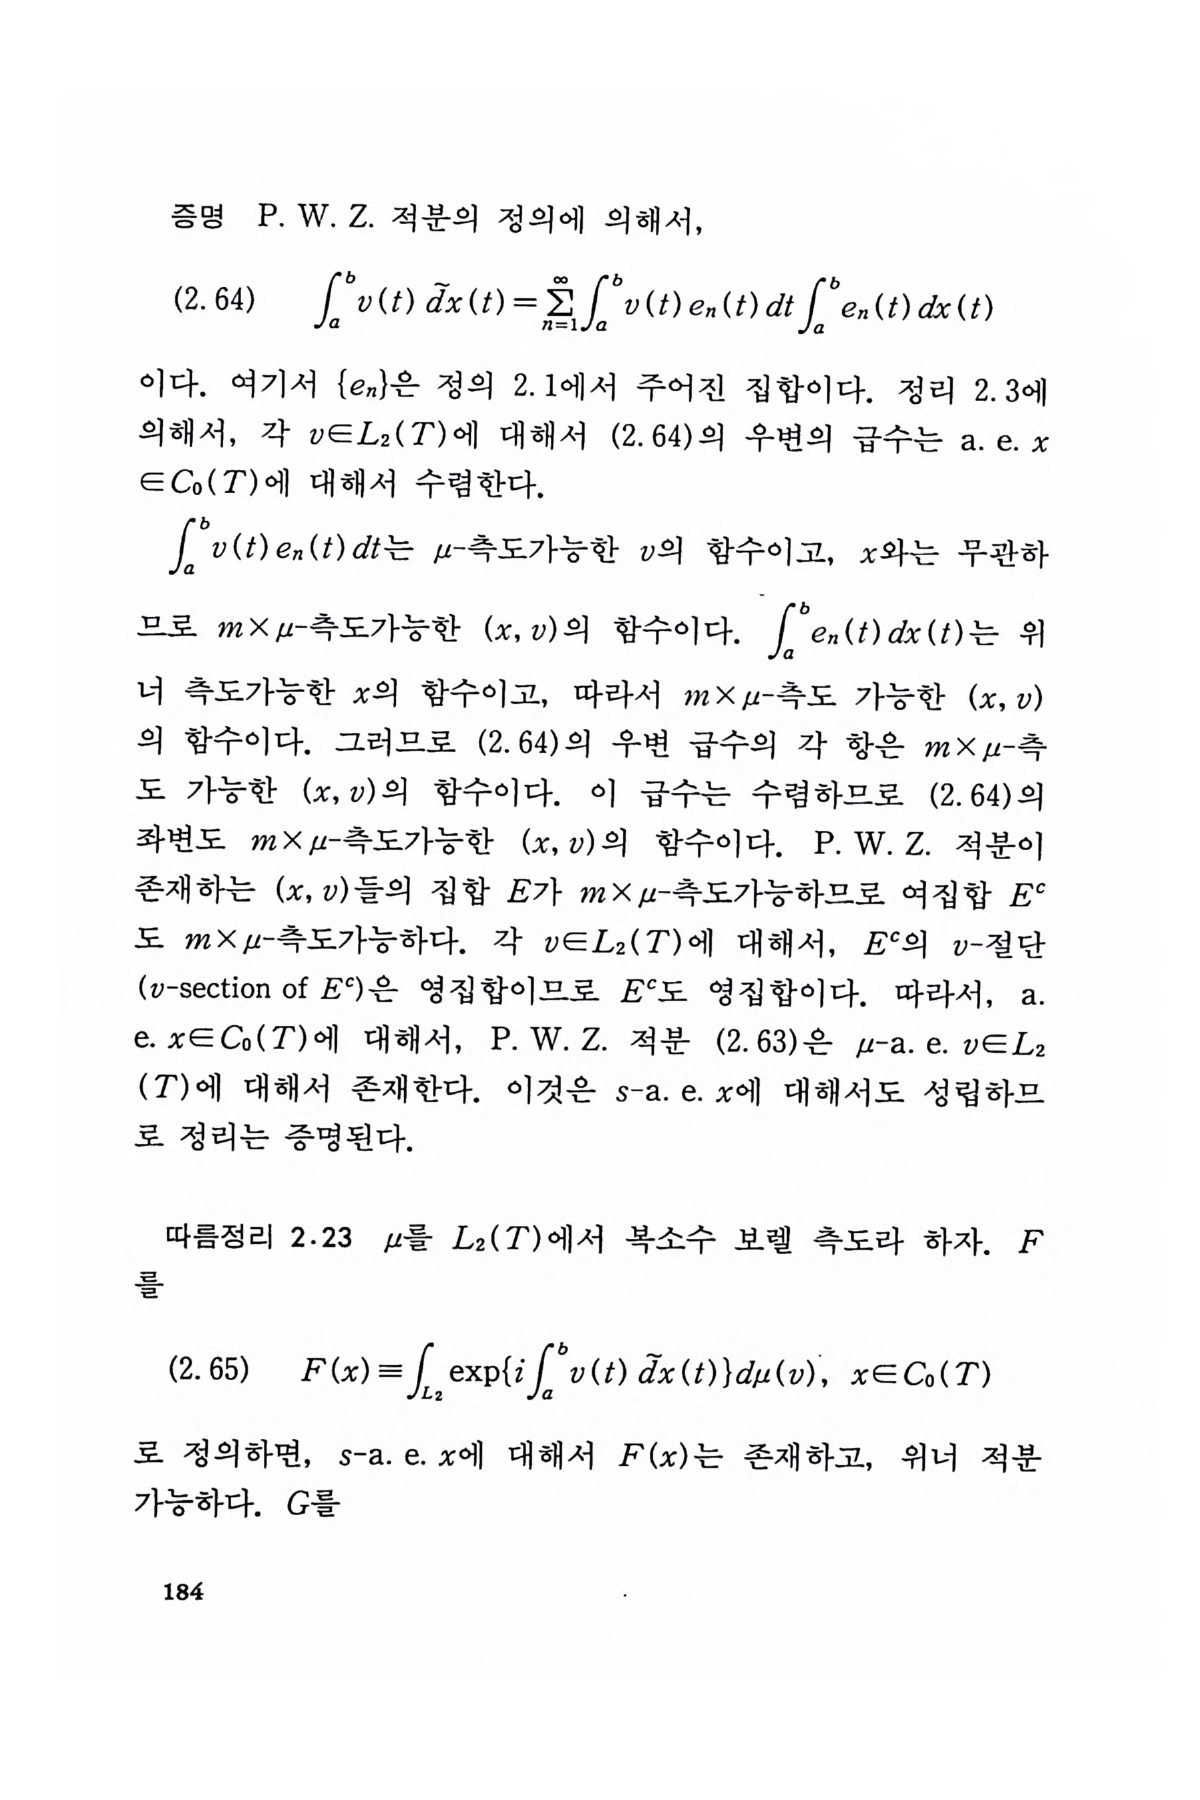 증명 P. W. Z. 적분의 정의에 의해서,
(2. 64) ∫ₐᵇ v(t) d̃x(t) = Σₙ₌₁^∞ ∫ₐᵇ v(t) eₙ(t) dt ∫ₐᵇ eₙ(t) dx(t)
이다. 여기서 {eₙ}은 정의 2. 1에서 주어진 집합이다. 정리 2. 3에
의해서, 각 v∈L₂(T)에 대해서 (2. 64)의 우변의 급수는 a. e. x
∈C₀(T)에 대해서 수렴한다.
∫ₐᵇ v(t) eₙ(t) dt는 μ-측도가능한 v의 함수이고, x와는 무관하
므로 m×μ-측도가능한 (x, v)의 함수이다. ∫ₐᵇ eₙ(t) dx(t)는 위
너 측도가능한 x의 함수이고, 따라서 m×μ-측도 가능한 (x, v)
의 함수이다. 그러므로 (2. 64)의 우변 급수의 각 항은 m×μ-측
도 가능한 (x, v)의 함수이다. 이 급수는 수렴하므로 (2. 64)의
좌변도 m×μ-측도가능한 (x, v)의 함수이다. P. W. Z. 적분이
존재하는 (x, v)들의 집합 E가 m×μ-측도가능하므로 여집합 Eᶜ
도 m×μ-측도가능하다. 각 v∈L₂(T)에 대해서, Eᶜ의 v-절단
(v-section of Eᶜ)은 영집합이므로 Eᶜ도 영집합이다. 따라서, a.
e. x∈C₀(T)에 대해서, P. W. Z. 적분 (2. 63)은 μ-a. e. v∈L₂
(T)에 대해서 존재한다. 이것은 s-a. e. x에 대해서도 성립하므
로 정리는 증명된다.
따름정리 2·23 μ를 L₂(T)에서 복소수 보렐 측도라 하자. F
를
(2. 65) F(x) ≡ ∫_L₂ exp{i ∫ₐᵇ v(t) d̃x(t)}dμ(v), x∈C₀(T)
로 정의하면, s-a. e. x에 대해서 F(x)는 존재하고, 위너 적분
가능하다. G를
184